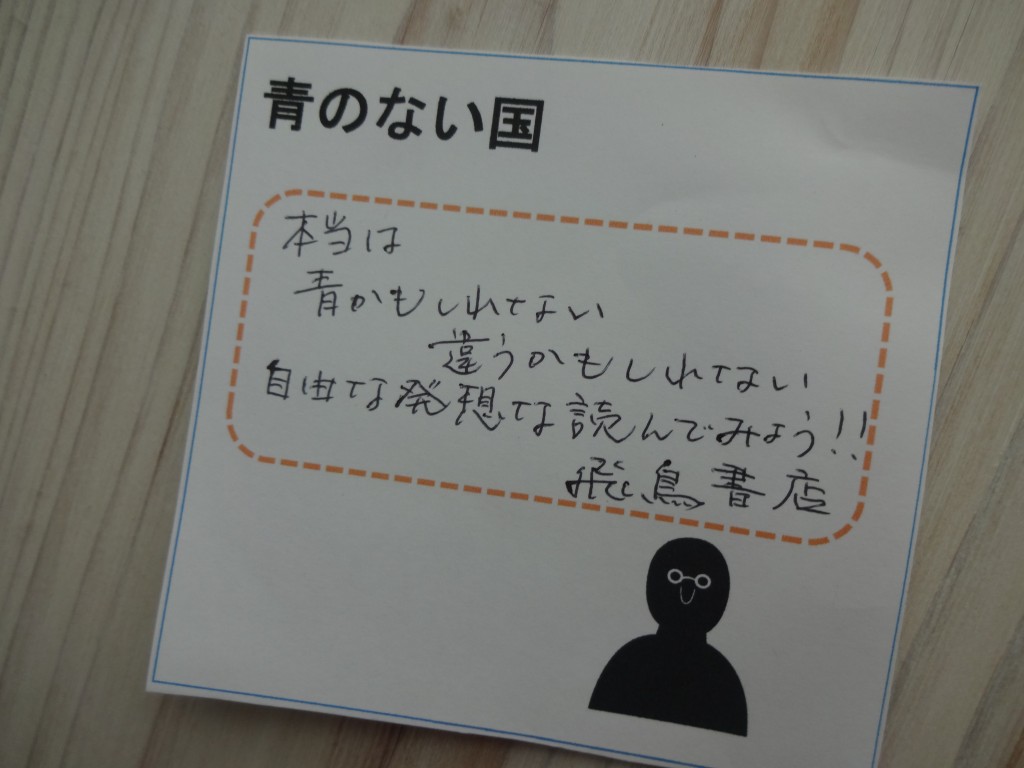 青のない国
本当は
青かもしれない
違うかもしれない
自由な発想な読んでみよう!!
飛鳥書店